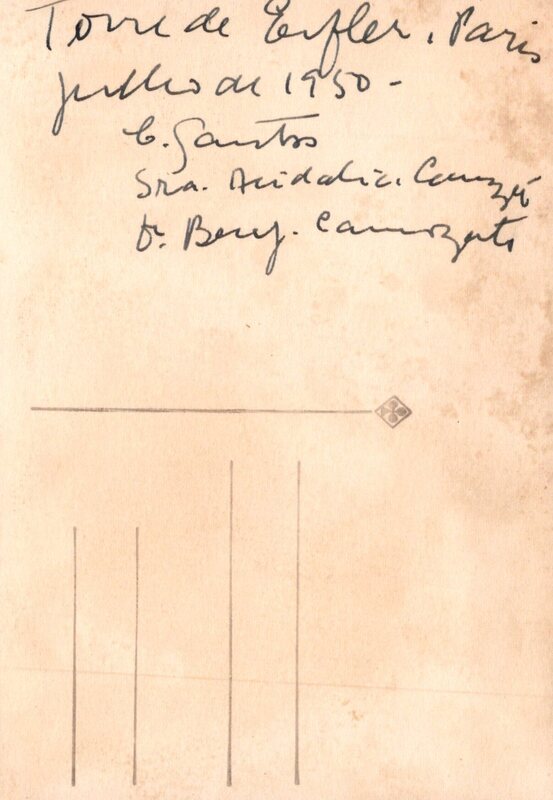 Torre de Eifler, Paris
julho de 1950 -
C. Santos
Sra. Acidalia
Dr. Benj. Camozato